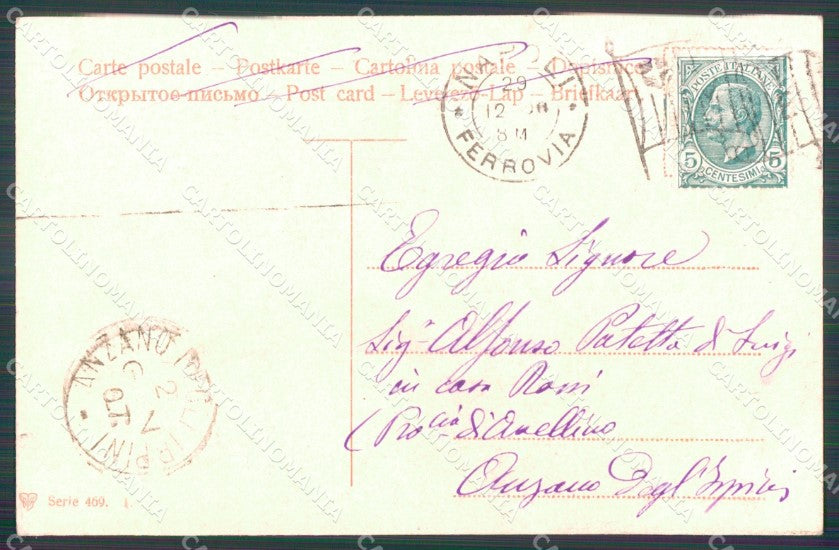 Carte postale – Postkarte – Cartolina postale – Dopisnice
Открытое письмо – Post card – Levelező-Lap – Briefkaart
29
12
8 M
FERROVIA
POSTE ITALIANE
5 CENTESIMI 5
Egregio Signore
Sigr Alfonso Patetta di Luigi
in casa Rossi
(Procia di Avellino
Anzano Degl'Irpini
ANZANO DEGLI IRPINI
2
7
07
Serie 469. 1.
CARTOLINOMANIA